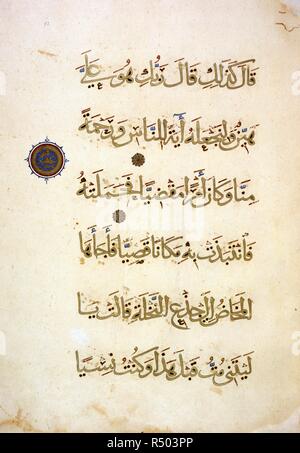 قَالَ كَذَلِكِ قَالَ رَبُّكِ هُوَ عَلَيَّ
هَيِّنٌ وَلِنَجْعَلَهُ آيَةً لِلنَّاسِ وَرَحْمَةً
مِنَّا وَكَانَ أَمْرًا مَقْضِيًّا فَحَمَلَتْهُ
فَانْتَبَذَتْ بِهِ مَكَانًا قَصِيًّا فَأَجَاءَهَا
الْمَخَاضُ إِلَى جِذْعِ النَّخْلَةِ قَالَتْ يَا
لَيْتَنِي مِتُّ قَبْلَ هَذَا وَكُنْتُ نَسْيًا
alamy - R503PP